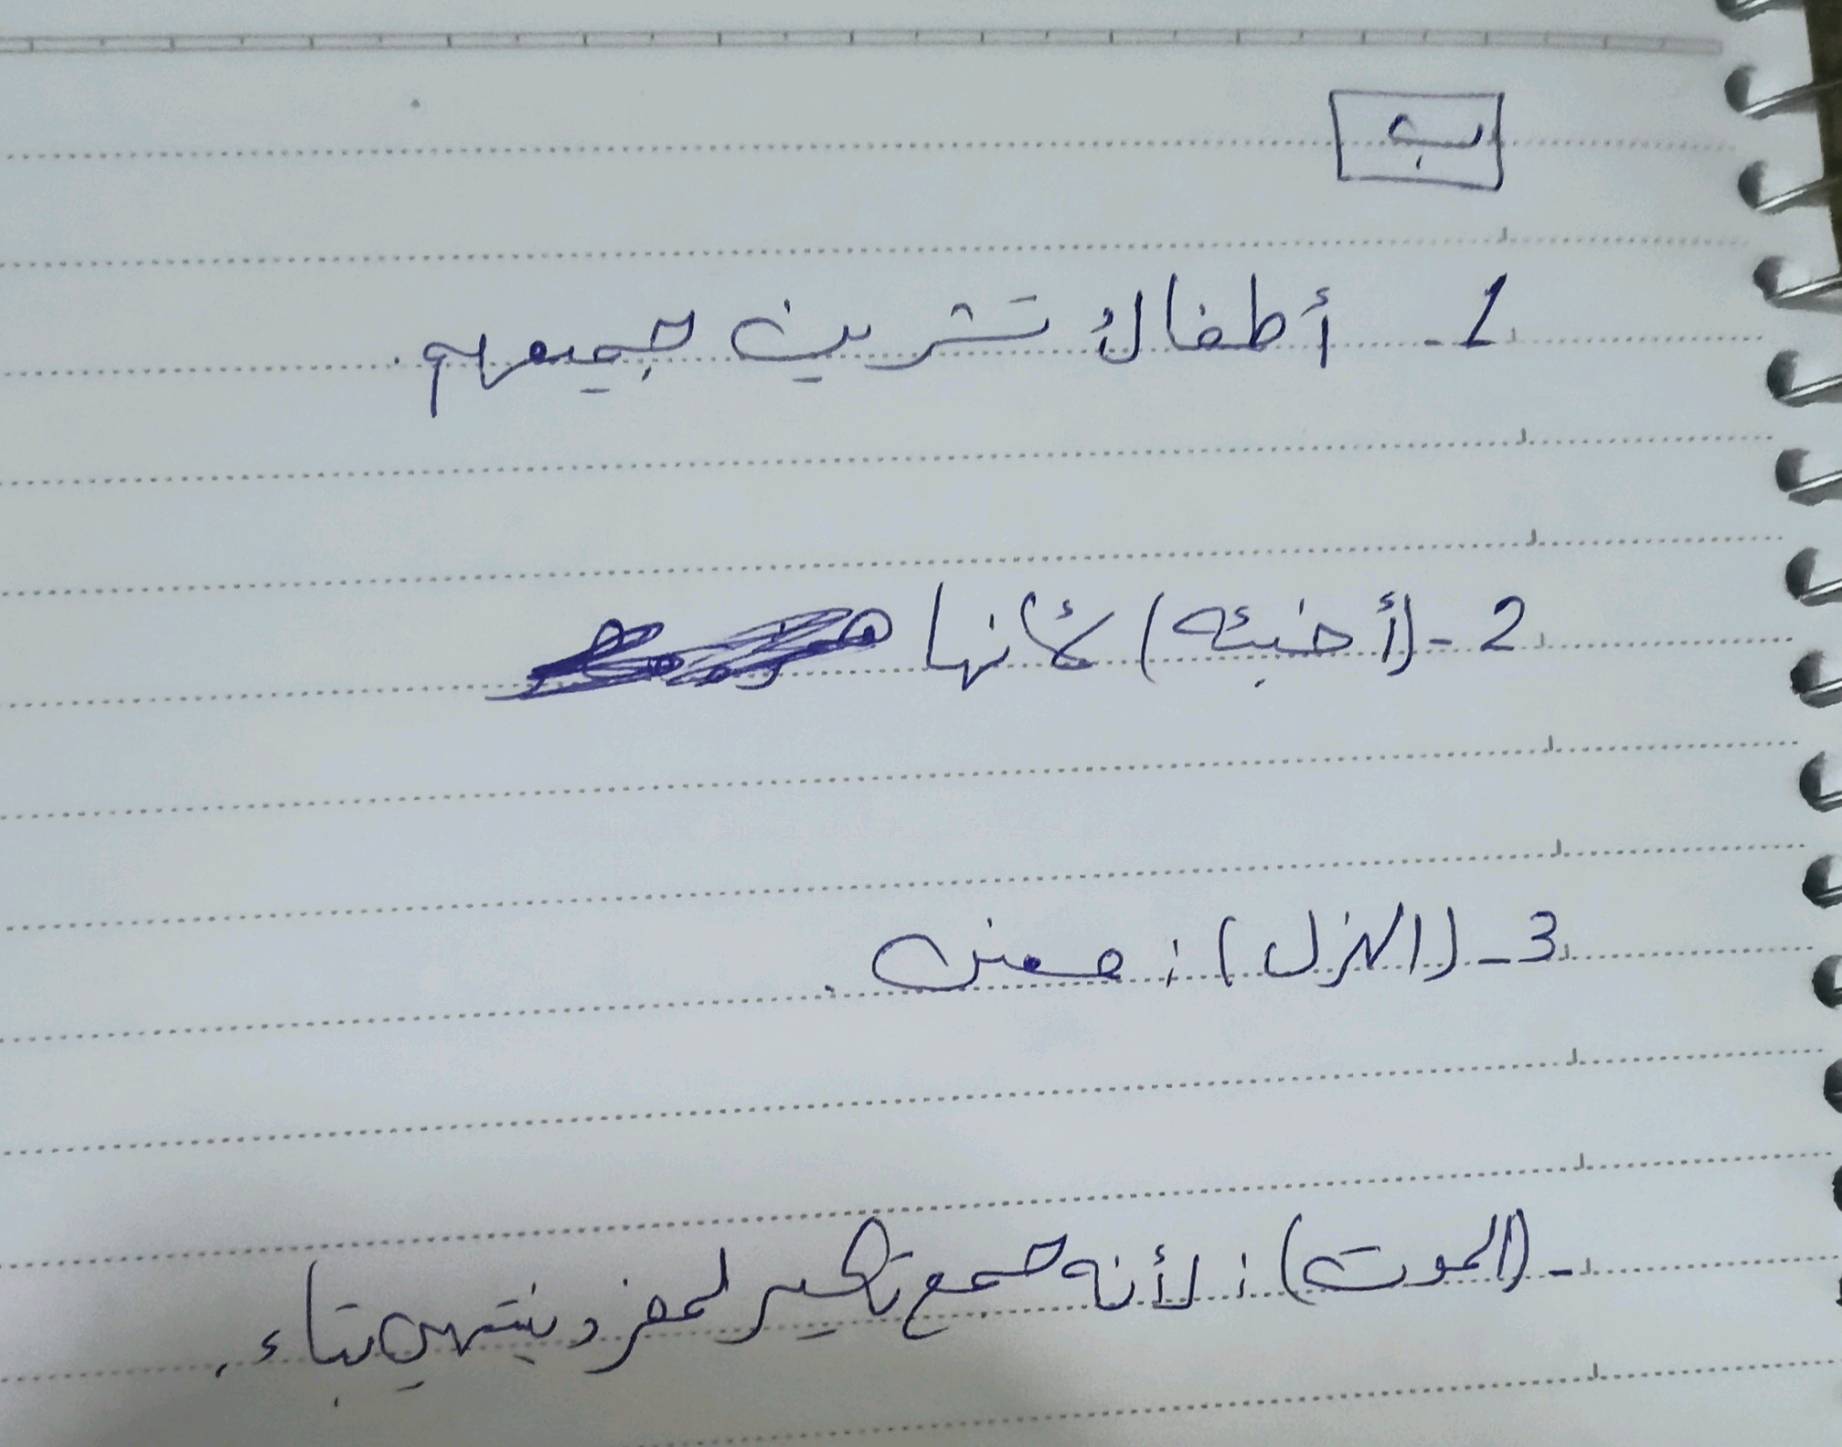 ب
1- أطفالُ تشرين جميعهم.
2- (أخبئه) لأنها
3- (الهزل): معنى.
- (الموت): لأنه جمع تكسير لمفرد ينتهي بتاء.